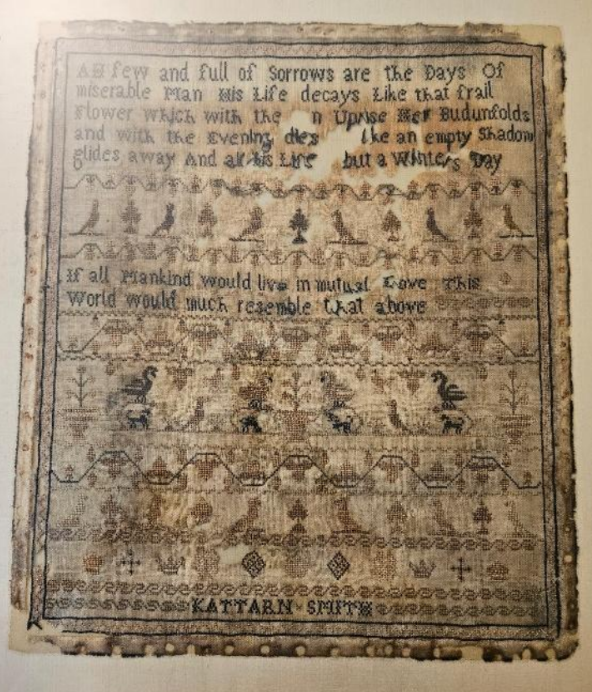 Ah few and full of Sorrows are the Days Of
miserable Man His Life decays Like that frail
Flower which with the n Uprise Her Budunfolds
and with the Evening dies ke an empty Shadow
glides away And all his Life but a Winters Day
If all Mankind would live in mutual Love This
World would much resemble that above
KATTARN SMITH